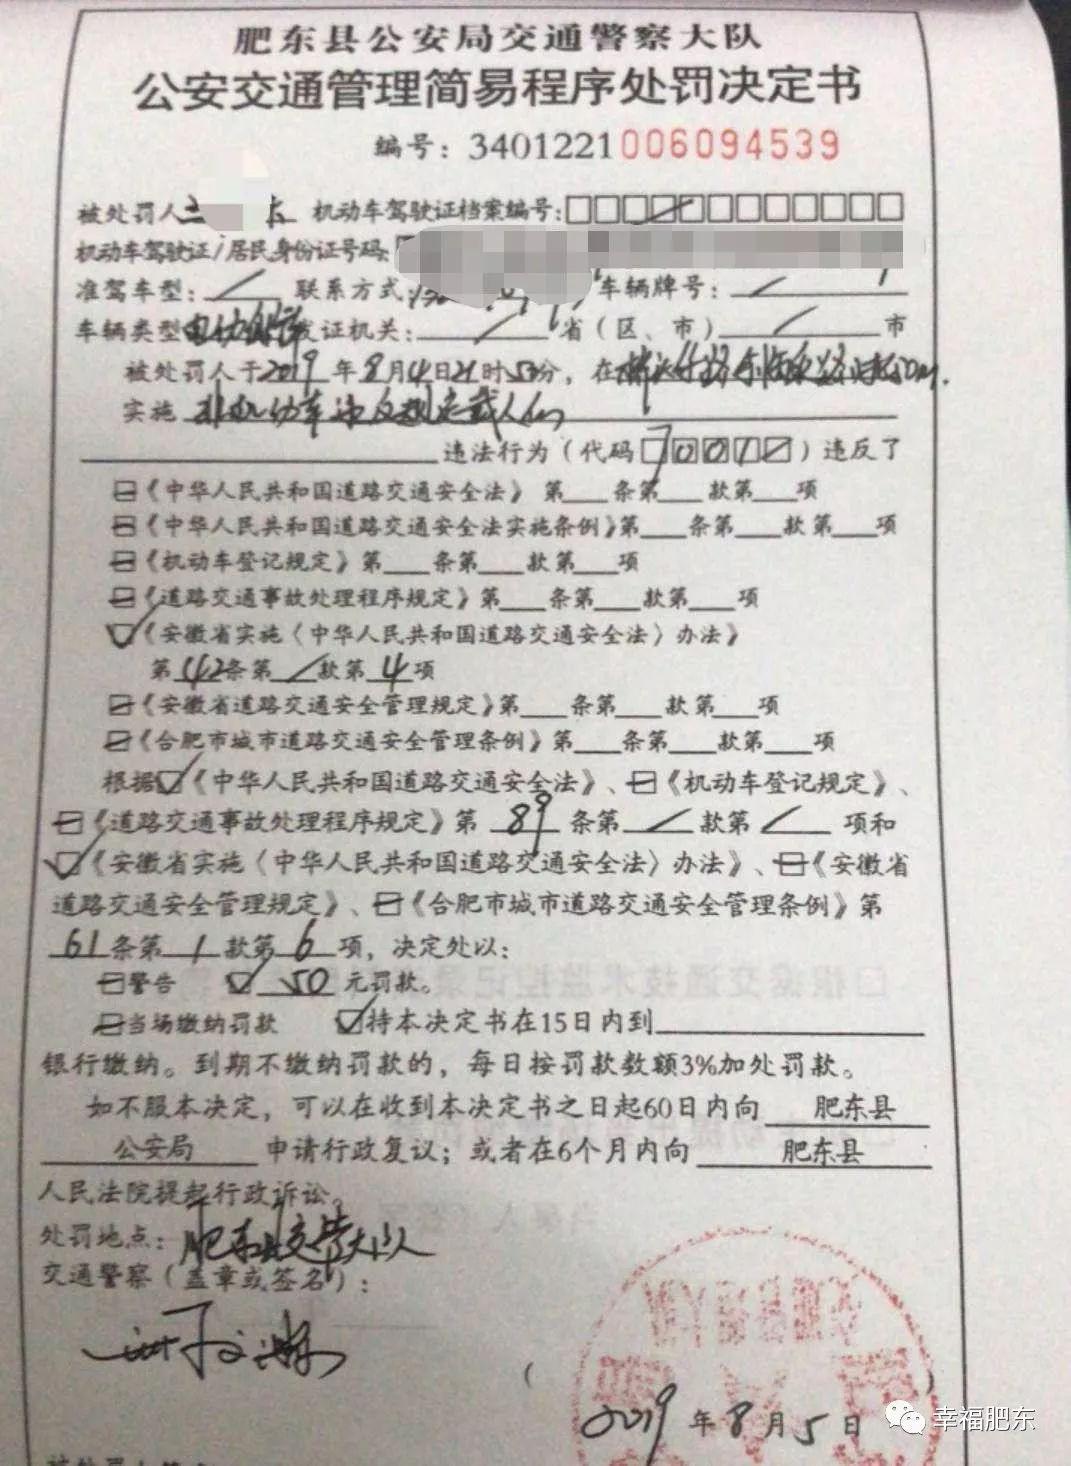 肥东县公安局交通警察大队
公安交通管理简易程序处罚决定书
编号：3401221006094539
被处罚人 机动车驾驶证档案编号：□□□□□□□□□□□□
机动车驾驶证/居民身份证号码：
准驾车型： 联系方式： 车辆牌号：
车辆类型 电动自行车 发证机关： 省（区、市） 市
被处罚人于2019年8月4日21时50分，在
实施 非机动车违反规定载人的
违法行为（代码 70012）违反了
《中华人民共和国道路交通安全法》 第 条第 款第 项
《中华人民共和国道路交通安全法实施条例》第 条第 款第 项
《机动车登记规定》第 条第 款第 项
《道路交通事故处理程序规定》第 条第 款第 项
《安徽省实施〈中华人民共和国道路交通安全法〉办法》
第 42 条第 / 款第 4 项
《安徽省道路交通安全管理规定》第 条第 款第 项
《合肥市城市道路交通安全管理条例》第 条第 款第 项
根据☑《中华人民共和国道路交通安全法》、《机动车登记规定》、
《道路交通事故处理程序规定》第 89 条第 / 款第 / 项和
☑《安徽省实施〈中华人民共和国道路交通安全法〉办法》、《安徽省
道路交通安全管理规定》、《合肥市城市道路交通安全管理条例》第
61 条第 1 款第 6 项，决定处以：
警告 ☑ 50 元罚款。
当场缴纳罚款 ☑持本决定书在15日内到
银行缴纳。到期不缴纳罚款的，每日按罚款数额3%加处罚款。
如不服本决定，可以在收到本决定书之日起60日内向 肥东县
公安局 申请行政复议；或者在6个月内向 肥东县
人民法院提起行政诉讼。
处罚地点：肥东县交警大队
交通警察（盖章或签名）：
2019年8月5日
幸福肥东